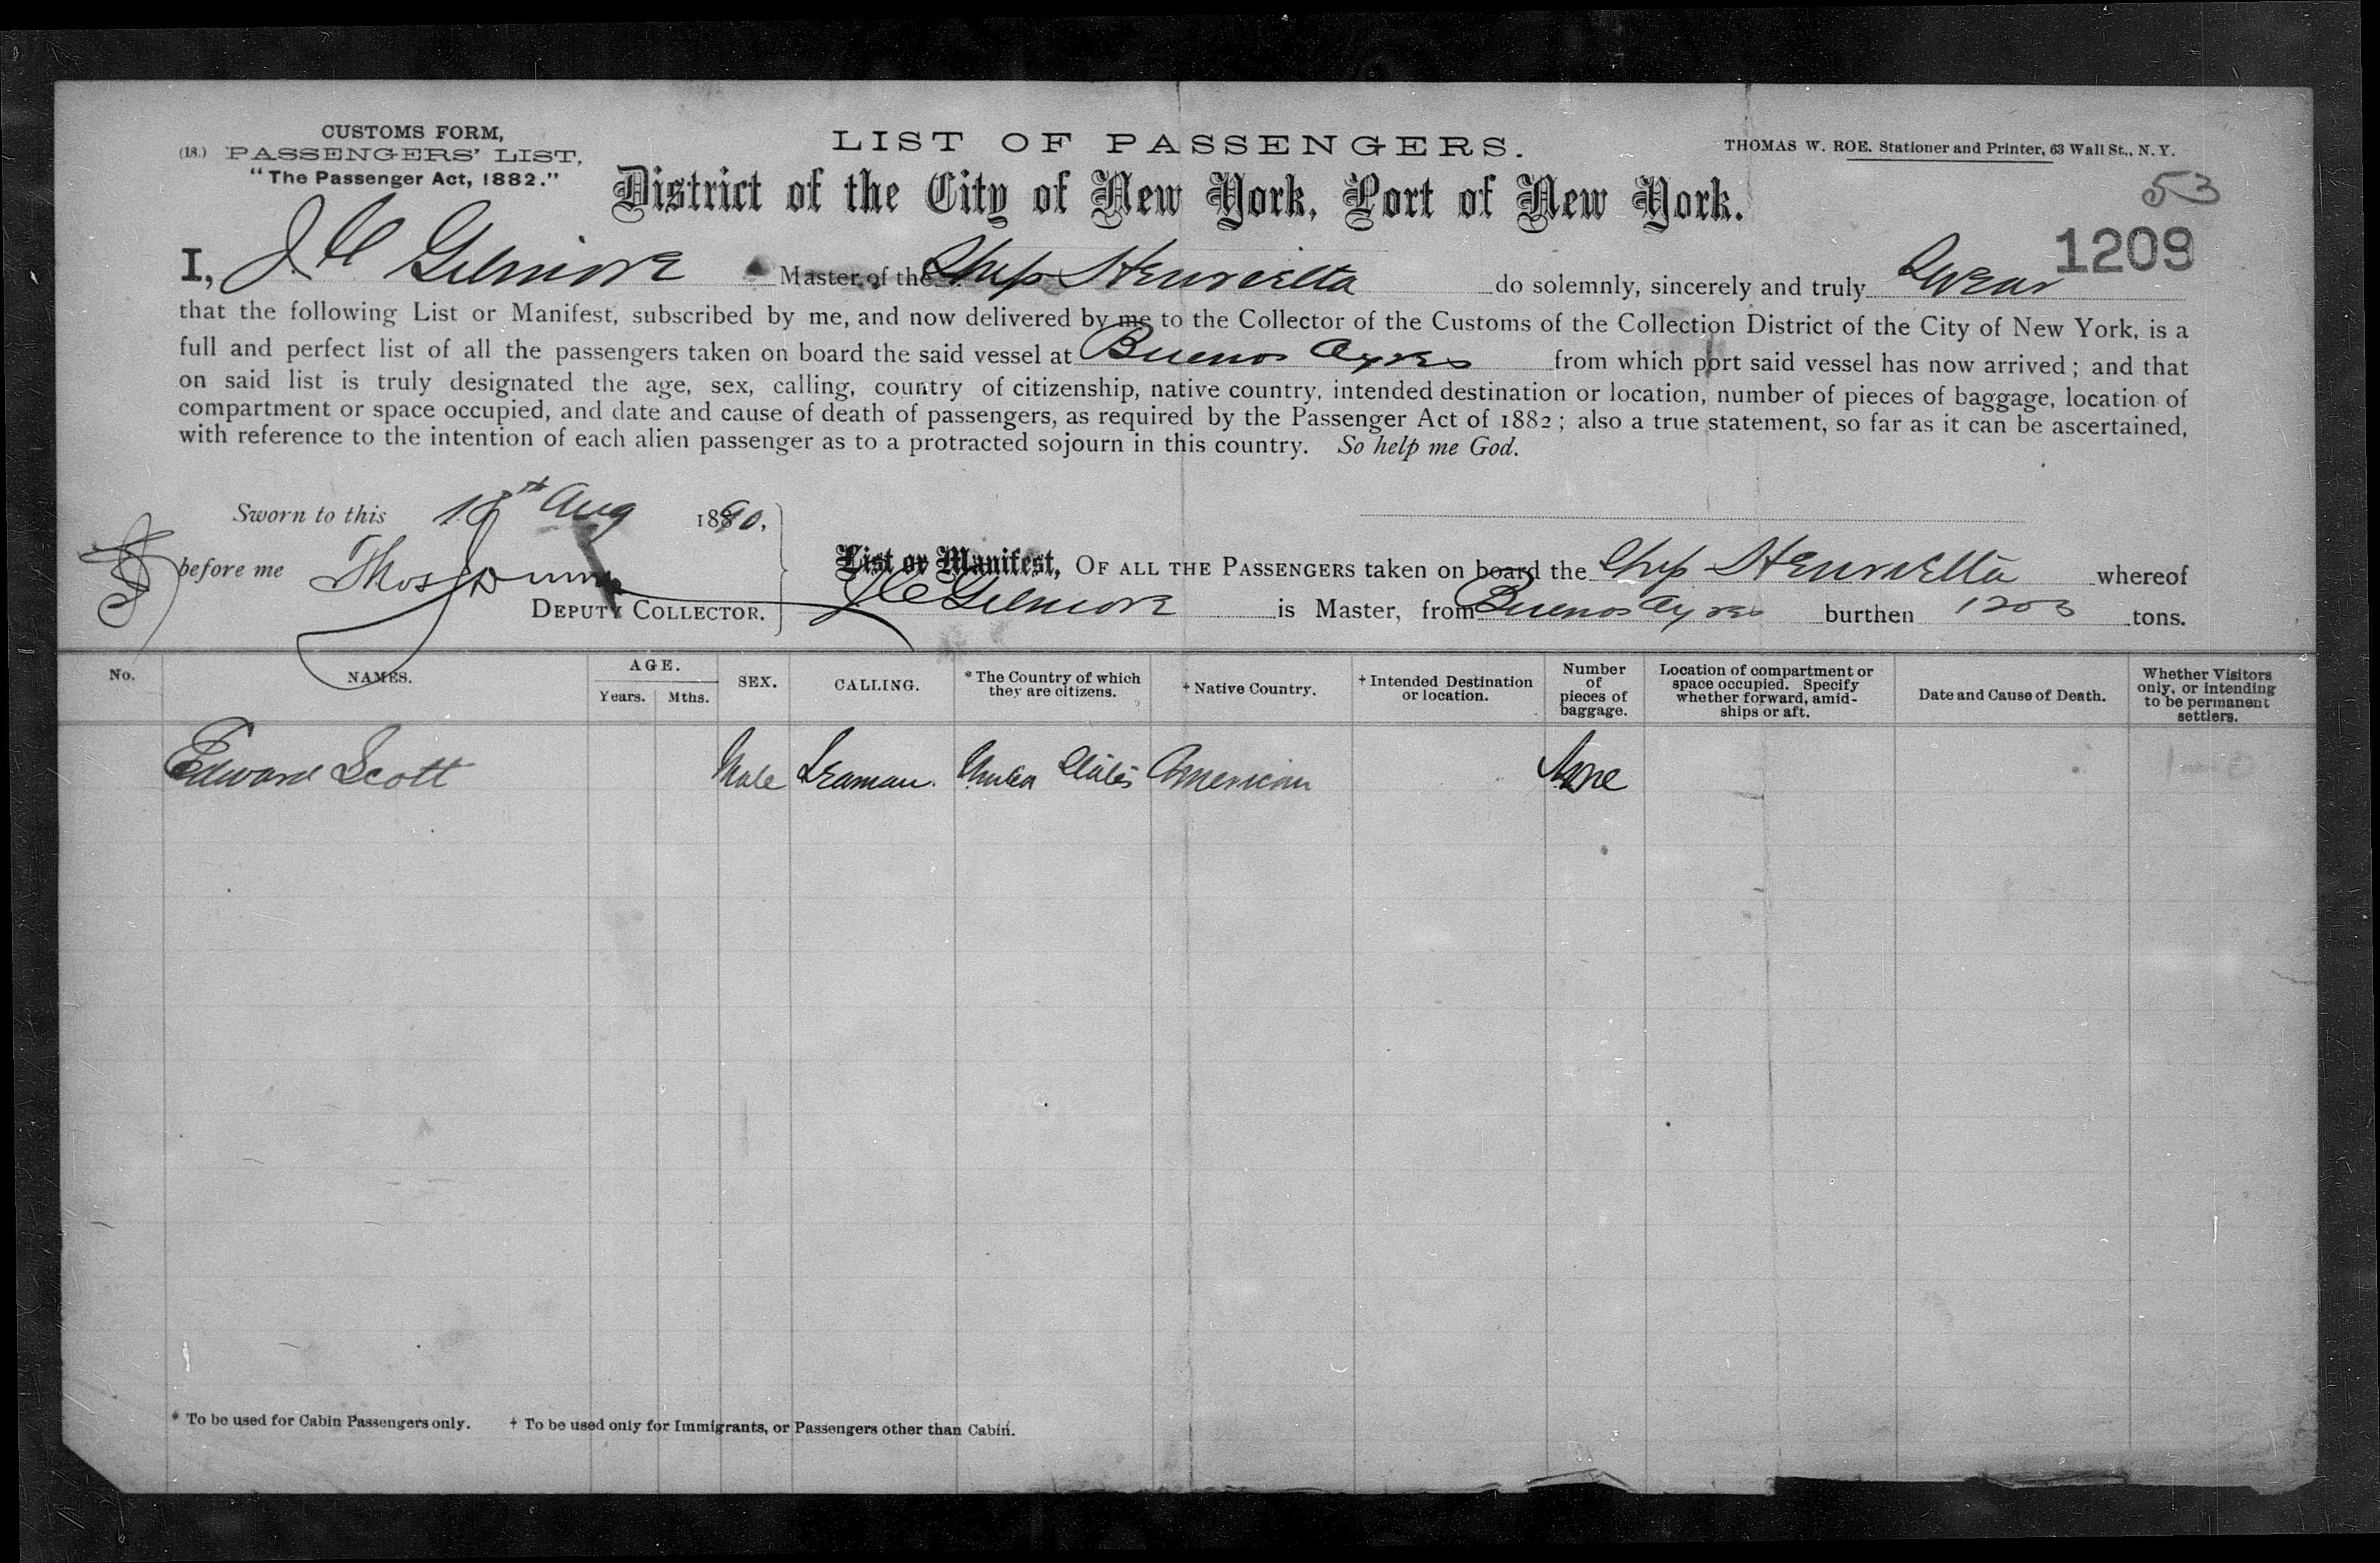 CUSTOMS FORM,
(18.) PASSENGERS' LIST,
"The Passenger Act, 1882."
LIST OF PASSENGERS.
THOMAS W. ROE. Stationer and Printer, 63 Wall St., N. Y.
District of the City of New York, Port of New York.
53
1209
I, J C Gilmore Master of the Ship Henrietta do solemnly, sincerely and truly Swear
that the following List or Manifest, subscribed by me, and now delivered by me to the Collector of the Customs of the Collection District of the City of New York, is a
full and perfect list of all the passengers taken on board the said vessel at Buenos Ayres from which port said vessel has now arrived; and that
on said list is truly designated the age, sex, calling, country of citizenship, native country, intended destination or location, number of pieces of baggage, location of
compartment or space occupied, and date and cause of death of passengers, as required by the Passenger Act of 1882; also a true statement, so far as it can be ascertained,
with reference to the intention of each alien passenger as to a protracted sojourn in this country. So help me God.
Sworn to this 18th Aug 1890,
before me Thos Dunn
DEPUTY COLLECTOR.
List or Manifest, OF ALL THE PASSENGERS taken on board the Ship Henrietta whereof
J C Gilmore is Master, from Buenos Ayres burthen 1203 tons.
No. NAMES. AGE. Years. Mths. SEX. CALLING. * The Country of which they are citizens. † Native Country. † Intended Destination or location. Number of pieces of baggage. Location of compartment or space occupied. Specify whether forward, amidships or aft. Date and Cause of Death. Whether Visitors only, or intending to be permanent settlers.
Edward Scott Male Seaman. United States American None
* To be used for Cabin Passengers only. † To be used only for Immigrants, or Passengers other than Cabin.